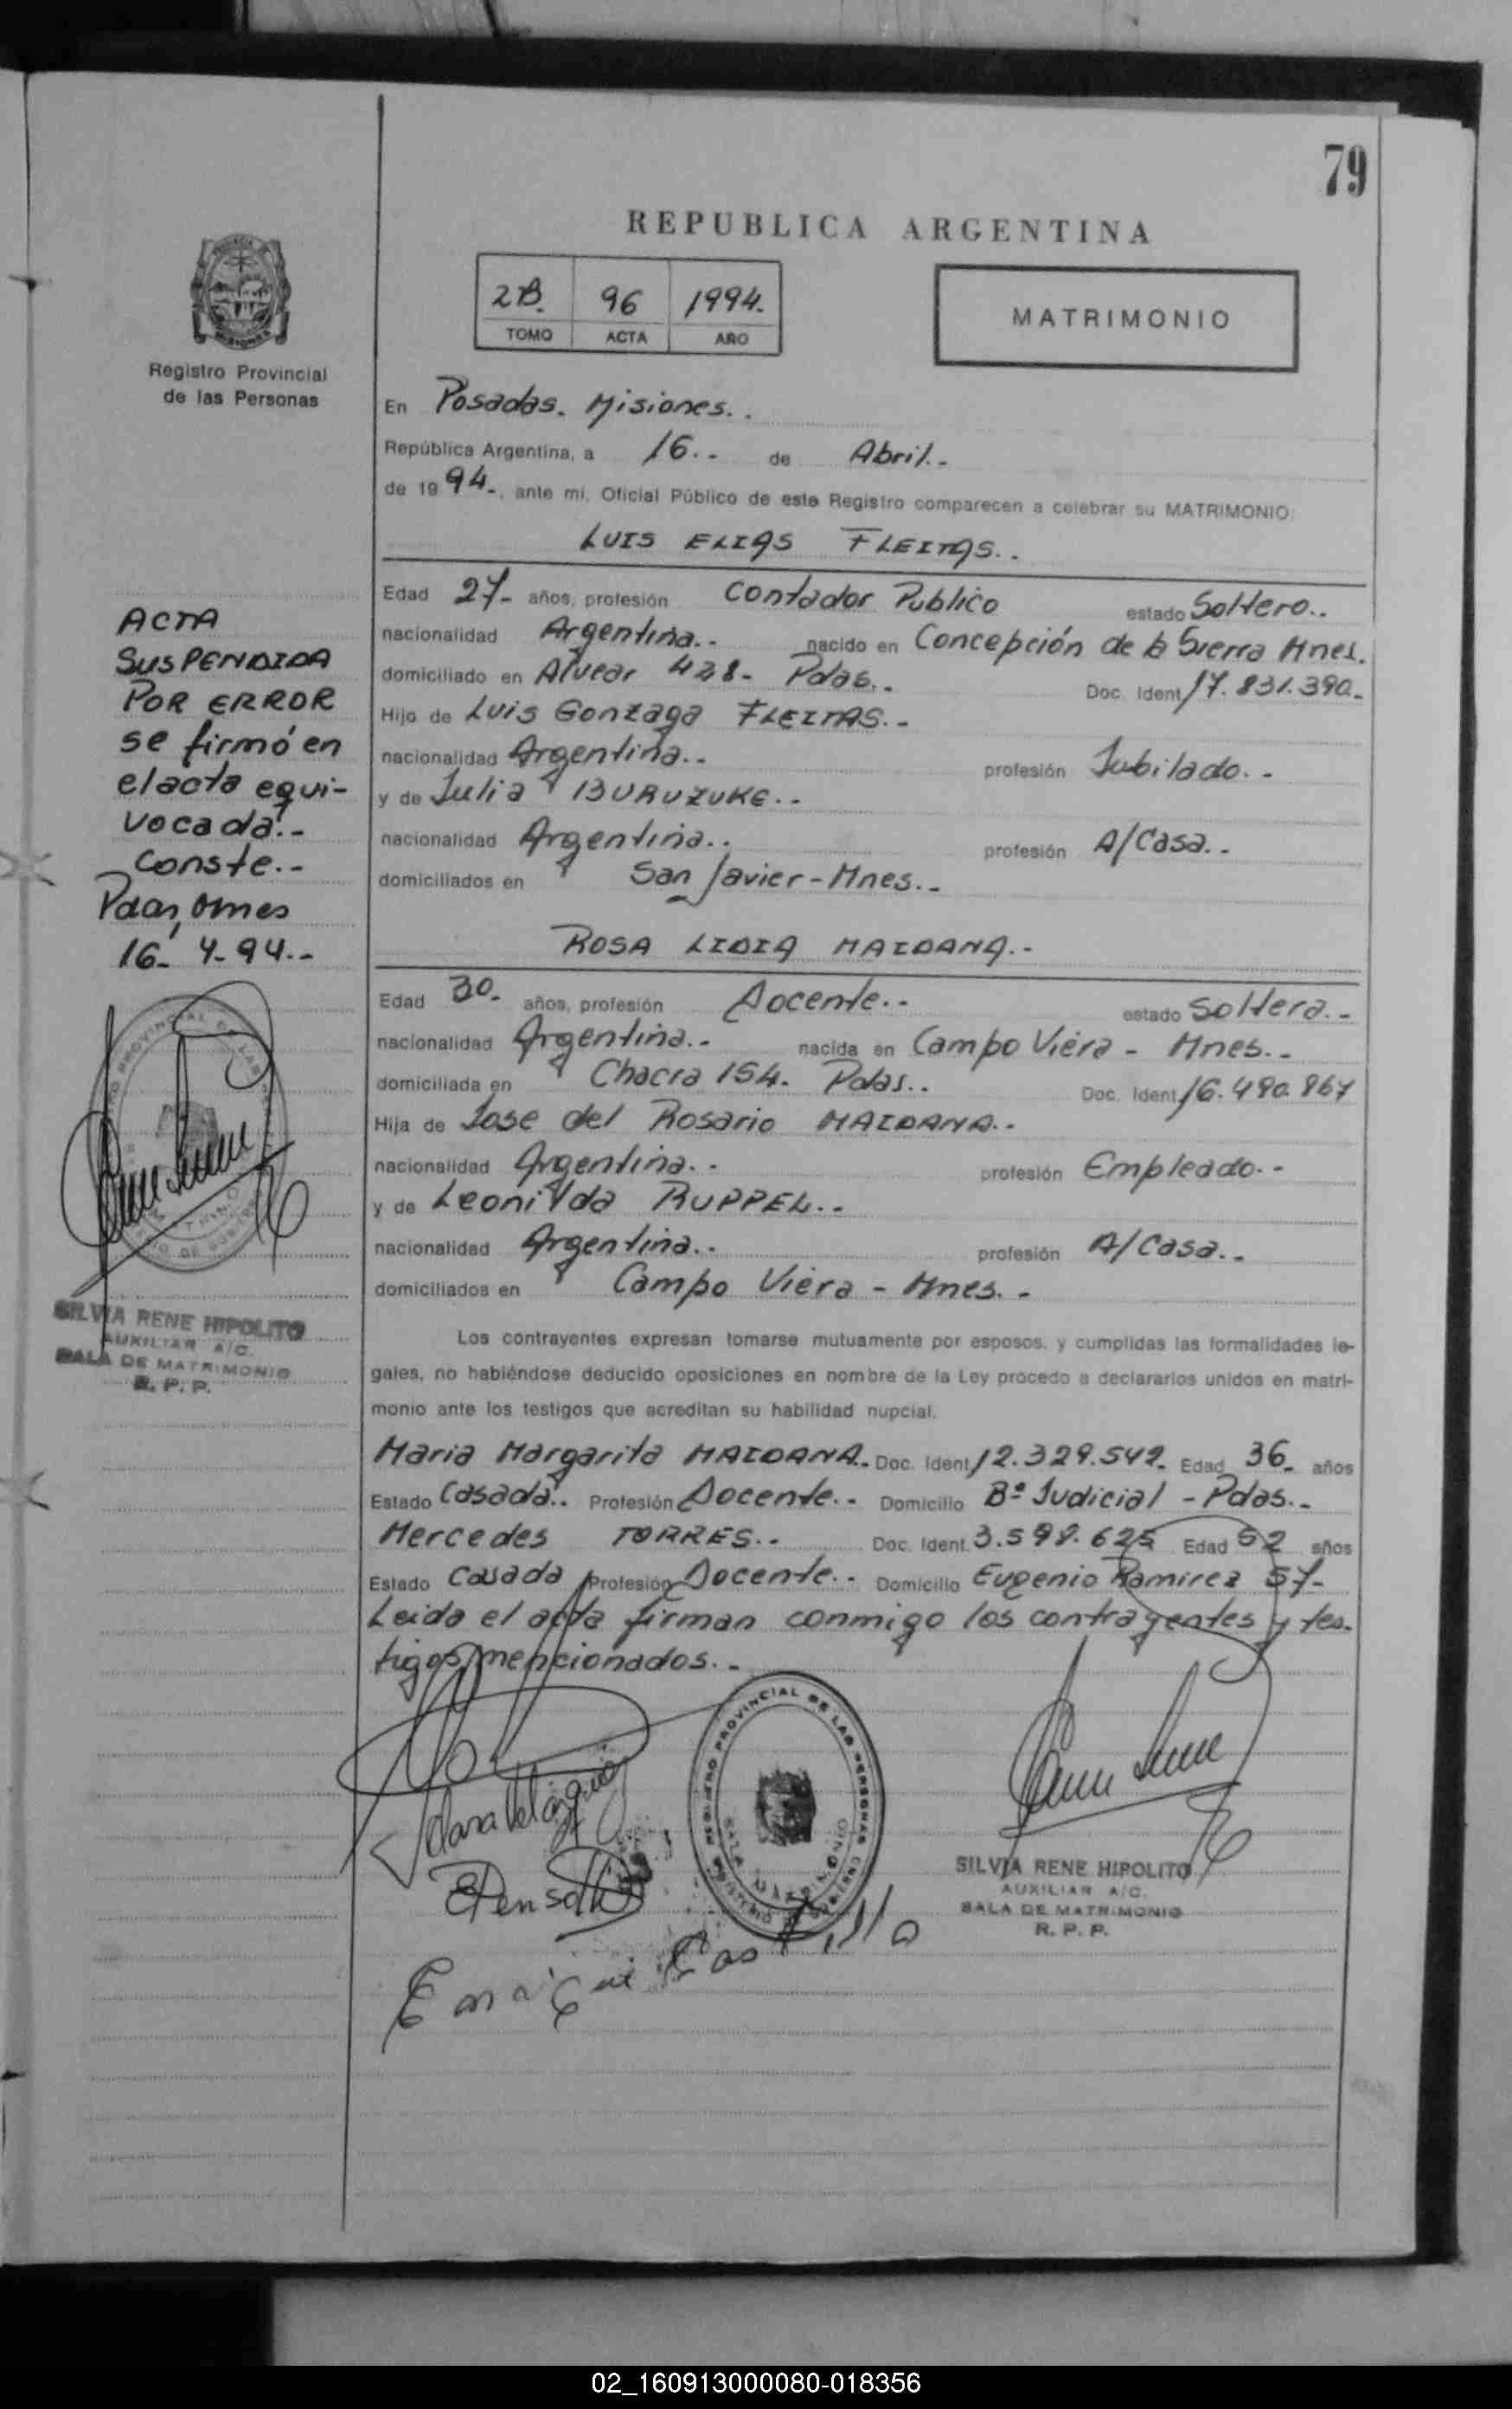 79
REPUBLICA ARGENTINA
2B. 96 1994.
TOMO ACTA AÑO
MATRIMONIO
Registro Provincial
de las Personas
En Posadas. Misiones..
República Argentina, a 16.. de Abril.-
de 1994-, ante mi, Oficial Público de este Registro comparecen a celebrar su MATRIMONIO:
LUIS ELIAS FLEITAS..
Edad 27- años, profesión Contador Publico estado Soltero..
nacionalidad Argentina.. nacido en Concepción de la Sierra Mnes.
domiciliado en Alvear 428- Pdas.. Doc. Ident. 17.831.390.-
Hijo de Luis Gonzaga FLEITAS.-
nacionalidad Argentina.. profesión Jubilado.-
y de Julia BURUZUKE..
nacionalidad Argentina.. profesión A/Casa..
domiciliados en San Javier-Mnes.-
ROSA LIDIA MAIDANA.-
Edad 30- años, profesión Docente.. estado Soltera.-
nacionalidad Argentina.- nacida en Campo Viera - Mnes..
domiciliada en Chacra 154. Pdas.. Doc. Ident. 16.490.867
Hija de Jose del Rosario MAIDANA..
nacionalidad Argentina.. profesión Empleado.-
y de Leonilda RUPPEL..
nacionalidad Argentina.. profesión A/Casa..
domiciliados en Campo Viera - Mnes.-
Los contrayentes expresan tomarse mutuamente por esposos, y cumplidas las formalidades le-
gales, no habiéndose deducido oposiciones en nombre de la Ley procedo a declararlos unidos en matri-
monio ante los testigos que acreditan su habilidad nupcial.
Maria Margarita MAIDANA. Doc. Ident. 12.329.542. Edad 36- años
Estado Casada.. Profesión Docente.. Domicilio Bº Judicial - Pdas..
Mercedes TORRES.. Doc. Ident. 3.598.625 Edad 52 años
Estado Casada Profesión Docente.. Domicilio Eugenio Ramirez 57-
Leida el acta firman conmigo los contrayentes y tes-
tigos mencionados.-
ACTA
SUSPENDIDA
POR ERROR
se firmó en
el acta equi-
vocada.-
Conste.-
Pdas, Mnes
16- 4- 94.-
SILVIA RENE HIPOLITO
AUXILIAR A/C.
SALA DE MATRIMONIO
R. P. P.
REGISTRO PROVINCIAL DE LAS PERSONAS
SILVIA RENE HIPOLITO
AUXILIAR A/C.
SALA DE MATRIMONIO
R. P. P.
02_160913000080-018356